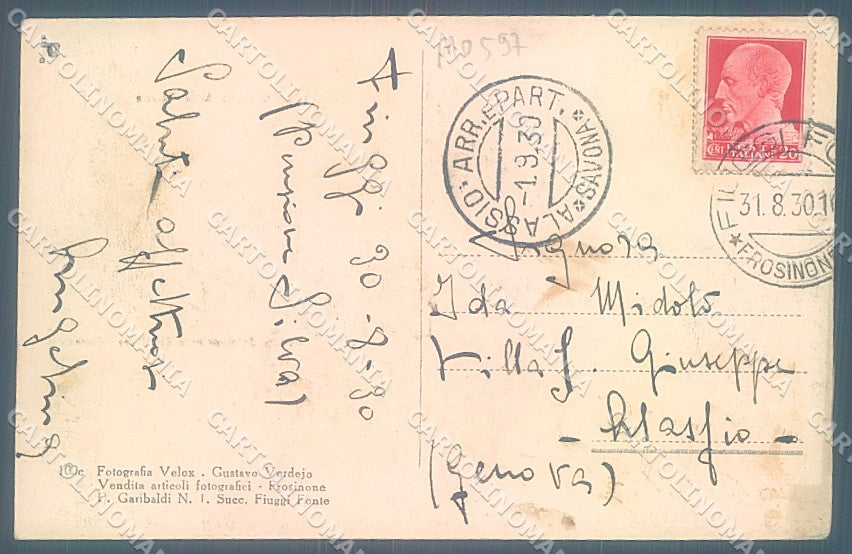 140597
Fiuggi 30-8-30
(Pensione Silva)
Saluti affettuosi
ALASSIO ARR. E PART. * SAVONA *
-1.9.30
POSTE ITALIANE
CENT. 20
FIUGGI FO
31.8.30.1
* FROSINONE
Signora
Ida Midolo
Villa S. Giuseppe
- Alassio -
(Genova)
100c. Fotografia Velox . Gustavo Verdejo
Vendita articoli fotografici - Frosinone
P. Garibaldi N. 1. Succ. Fiuggi Fonte
CARTOLINOMANIA